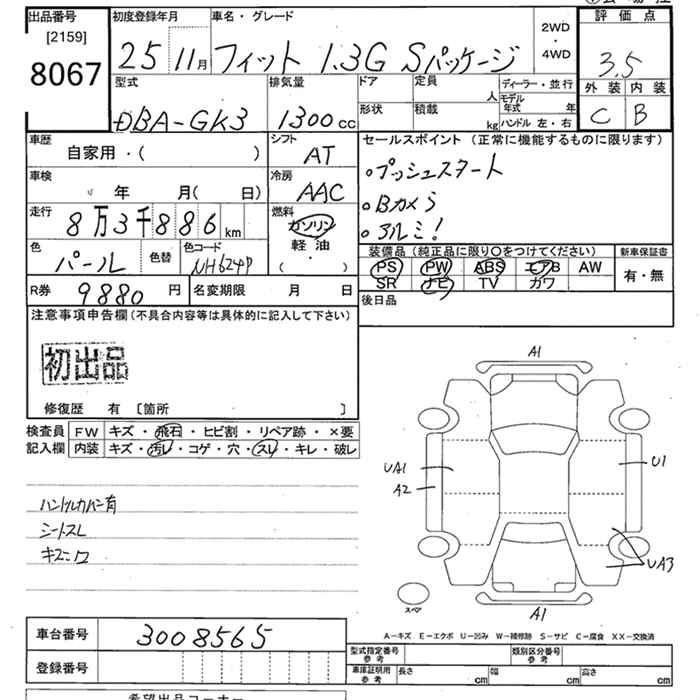 出品番号 初度登録年月 車名・グレード 評価点
[2159] 8067 25 11月 フィット 1.3G Sパッケージ 2WD・4WD 3.5
型式 排気量 ドア 定員 人 ディーラー・並行 外装 内装
DBA-GK3 1300cc 形状 積載 kg モデル年式 年 ハンドル 左・右 C B
車歴 自家用・( ) シフト AT セールスポイント (正常に機能するものに限ります)
・プッシュスタート
車検 年 月( 日) 冷房 AAC ・Bカメラ
走行 8万3千886km 燃料 ガソリン 軽油・( ) ・アルミ!
色 パール 色替 色コード NH624P 装備品(純正品に限り○をつけてください) 新車保証書
PS PW ABS エアB AW 有・無
SR ナビ TV カワ
R券 9880円 名変期限 月 日 後日品
注意事項申告欄(不具合内容等は具体的に記入して下さい)
初出品
修復歴 有 [箇所 ]
検査員 FW キズ・飛石・ヒビ割・リペア跡・×要
記入欄 内装 キズ・汚レ・コゲ・穴・スレ・キレ・破レ
ハンドルカバー有
シートスレ
A1
UA1 U1
A2
UA3
スペア A1
A-キズ E-エクボ U-凹み W-補修跡 S-サビ C-腐食 XX-交換済
車台番号 3008565 型式指定番号 参考 類別区分番号 参考
登録番号 車庫証明用 参考 長さ cm 幅 cm 高さ cm
希望出品コーナー